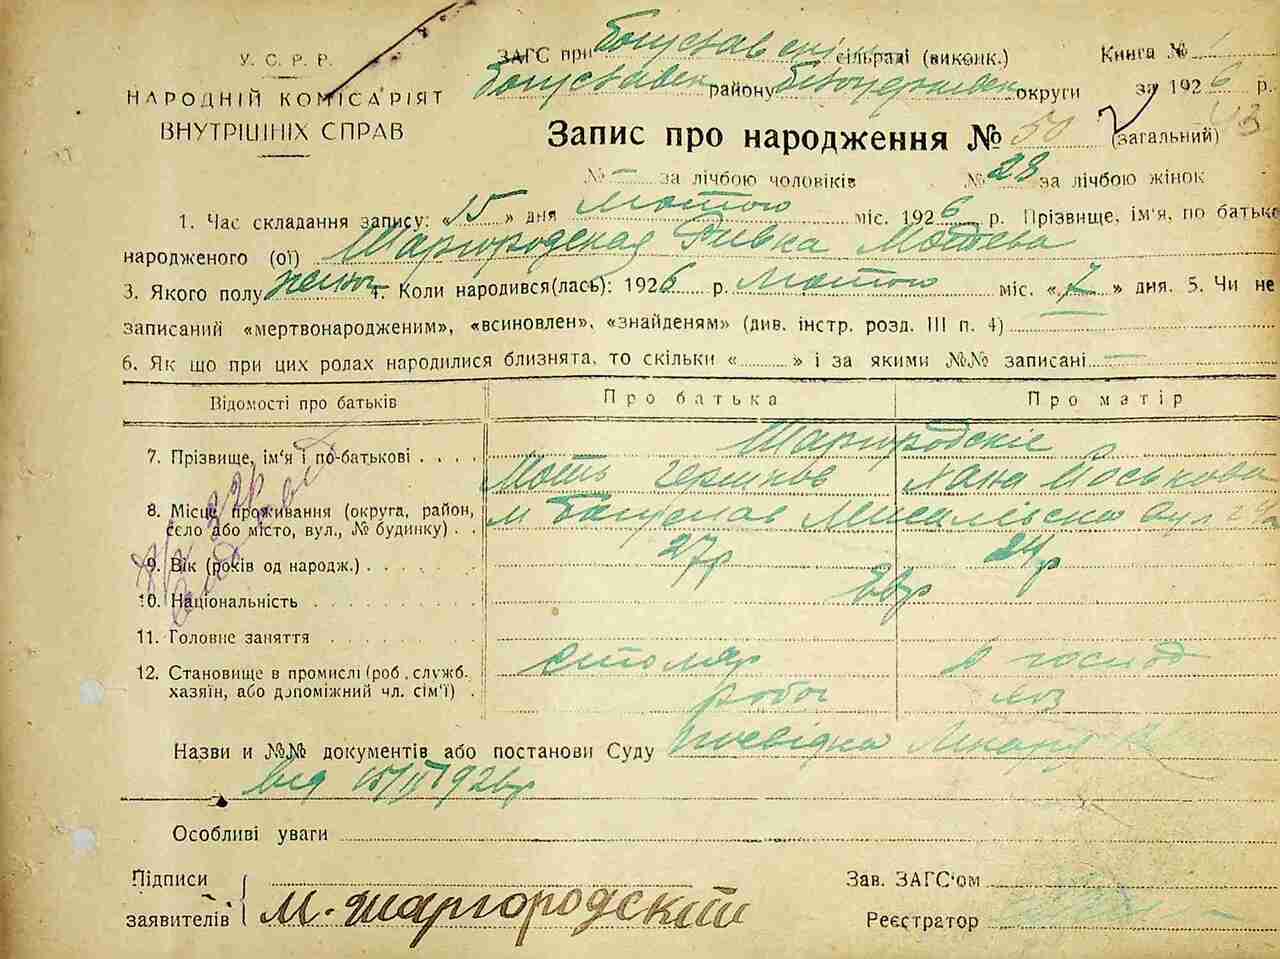 У. С. Р. Р.
НАРОДНІЙ КОМІСА'РІЯТ
ВНУТРІШНІХ СПРАВ
ЗАГС при Богуславскім сільраді (виконк.)
Книга № 1
Богуславск району Білоцерківск округи
за 1926 р.
Запис про народження № 50 (загальний) 43
№ — за лічбою чоловіків № 28 за лічбою жінок
1. Час складання запису: «15» дня Лютого міс. 1926 р. Прізвище, ім'я, по батьке
народженого (ої) Шаргородская Ривка Мотева
3. Якого полу жіноч 4. Коли народився(лась): 1926 р. Лютого міс. «7» дня. 5. Чи не
записаний «мертвонародженим», «всиновлен», «знайденям» (див. інстр. розд. III п. 4) —
6. Як що при цих ролах народилися близнята, то скільки « » і за якими №№ записані —
Відомості про батьків Про батька Про матір
7. Прізвище, ім'я і по-батькові Шаргородскіе
Моть Гершков Хана Йоськова
8. Місце проживання (округа, район,
село або місто, вул., № будинку) м Богуслав вул
9. Вік (років од народж.) 27р 24р
10. Національність Євр
11. Головне заняття
столяр госпо​д
12. Становище в промислі (роб., служб.
хазяїн, або допоміжний чл. сім'ї) робоч
Назви и №№ документів або постанови Суду посвідка
від 15/II 1926р
Особливі уваги
Підписи
заявителів М. Шаргородский
Зав. ЗАГС'ом
Реєстратор